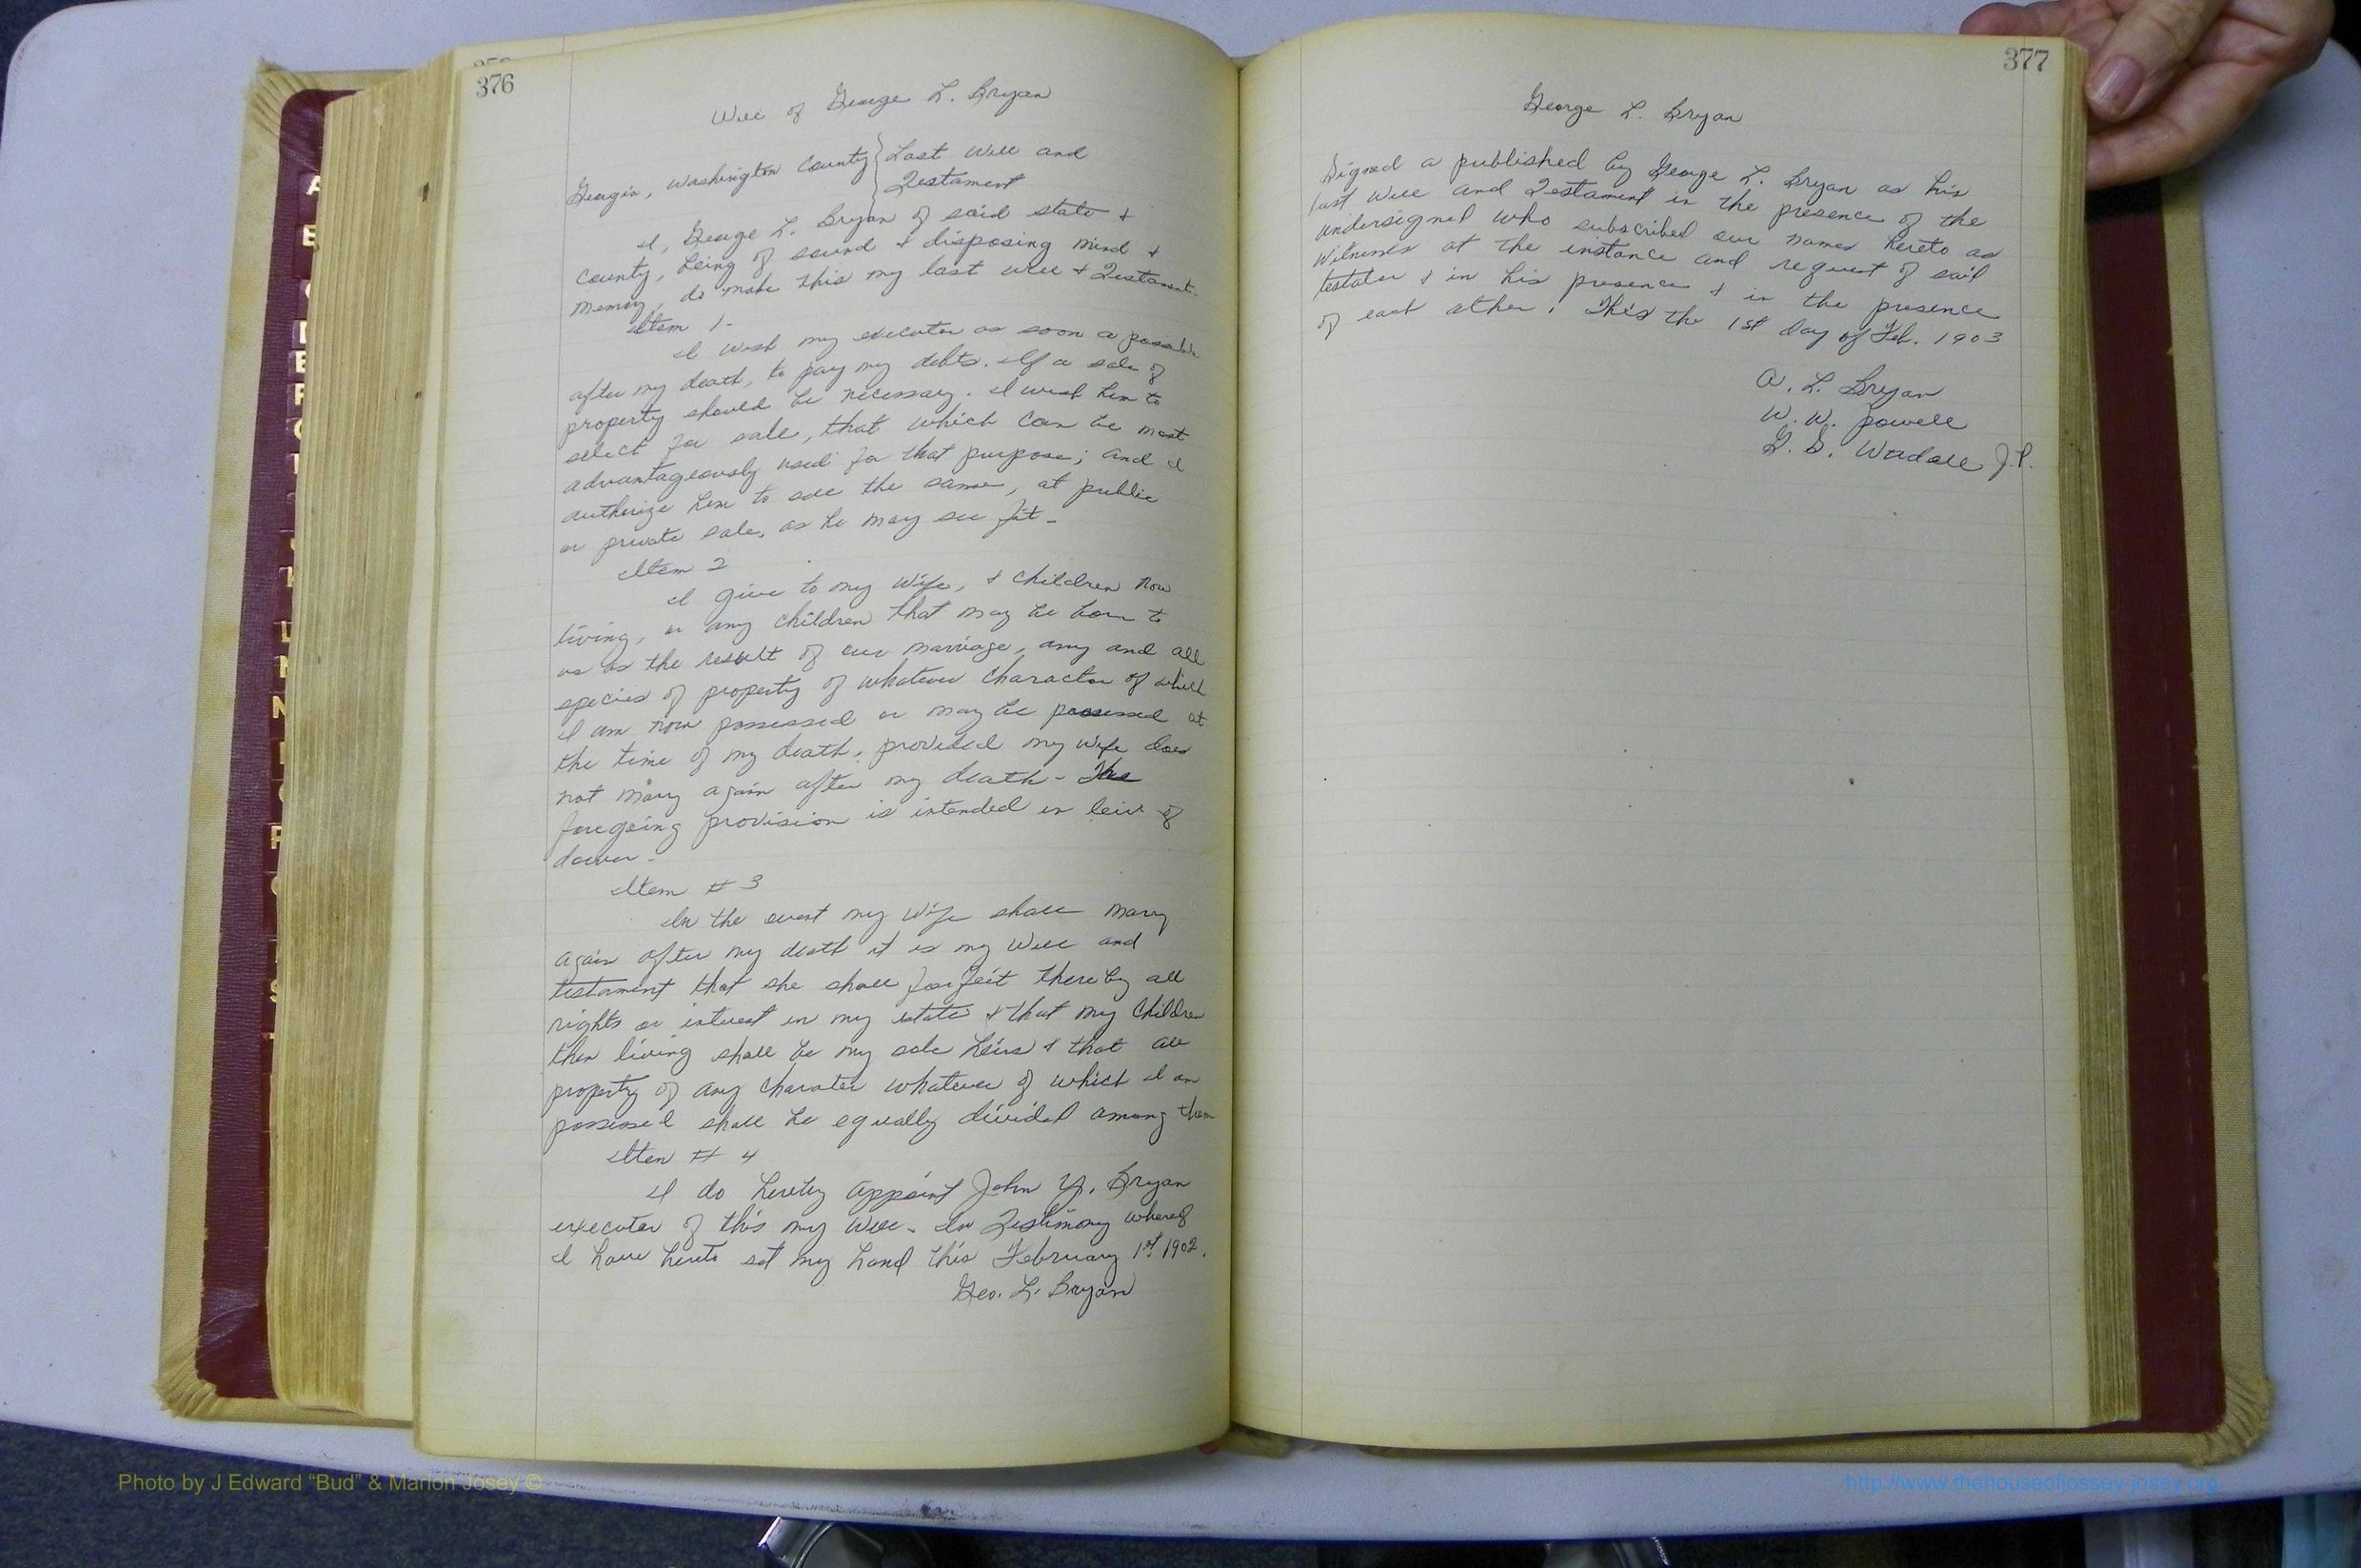 376
Will of George L. Bryan
Georgia, Washington County } Last Will and
Testament
I, George L. Bryan of said state &
County, being of sound & disposing mind &
memory, do make this my last will & Testament.
Item 1-
I wish my executor as soon a possible
after my death, to pay my debts. If a sale of
property should be necessary. I wish him to
select for sale, that which can be most
advantageously used for that purpose; and I
authorize him to sell the same, at public
or private sale, as he may see fit-
Item 2
I give to my wife, & children now
living, or any children that may be born to
us as the result of our marriage, any and all
species of property of whatever character of which
I am now possessed or may be possessed at
the time of my death, provided my wife does
not mary again after my death - The
foregoing provision is intended in leiu of
dower-
Item # 3
In the event my wife shall mary
again after my death it is my will and
testament that she shall forfeit thereby all
rights or interest in my estate & that my children
then living shall be my sole heirs & that all
property of any charater whatever of which I am
possessed shall be equally divided among them
Item # 4
I do hereby appoint John Y. Bryan
executor of this my will - In Testimony whereof
I have hereto set my hand this February 1st 1902.
Geo. L. Bryan
377
George L. Bryan
Signed a published by George L. Bryan as his
last will and Testament in the presence of the
undersigned who subscribed our names hereto as
witnesses at the instance and request of said
testator & in his presence & in the presence
of each other. This the 1st day of Feb. 1903
A. L. Bryan
W. W. Powell
G. S. J.P.
Photo by J Edward “Bud” & Marion Josey ©
http://www.thehouseofjossey-josey.org